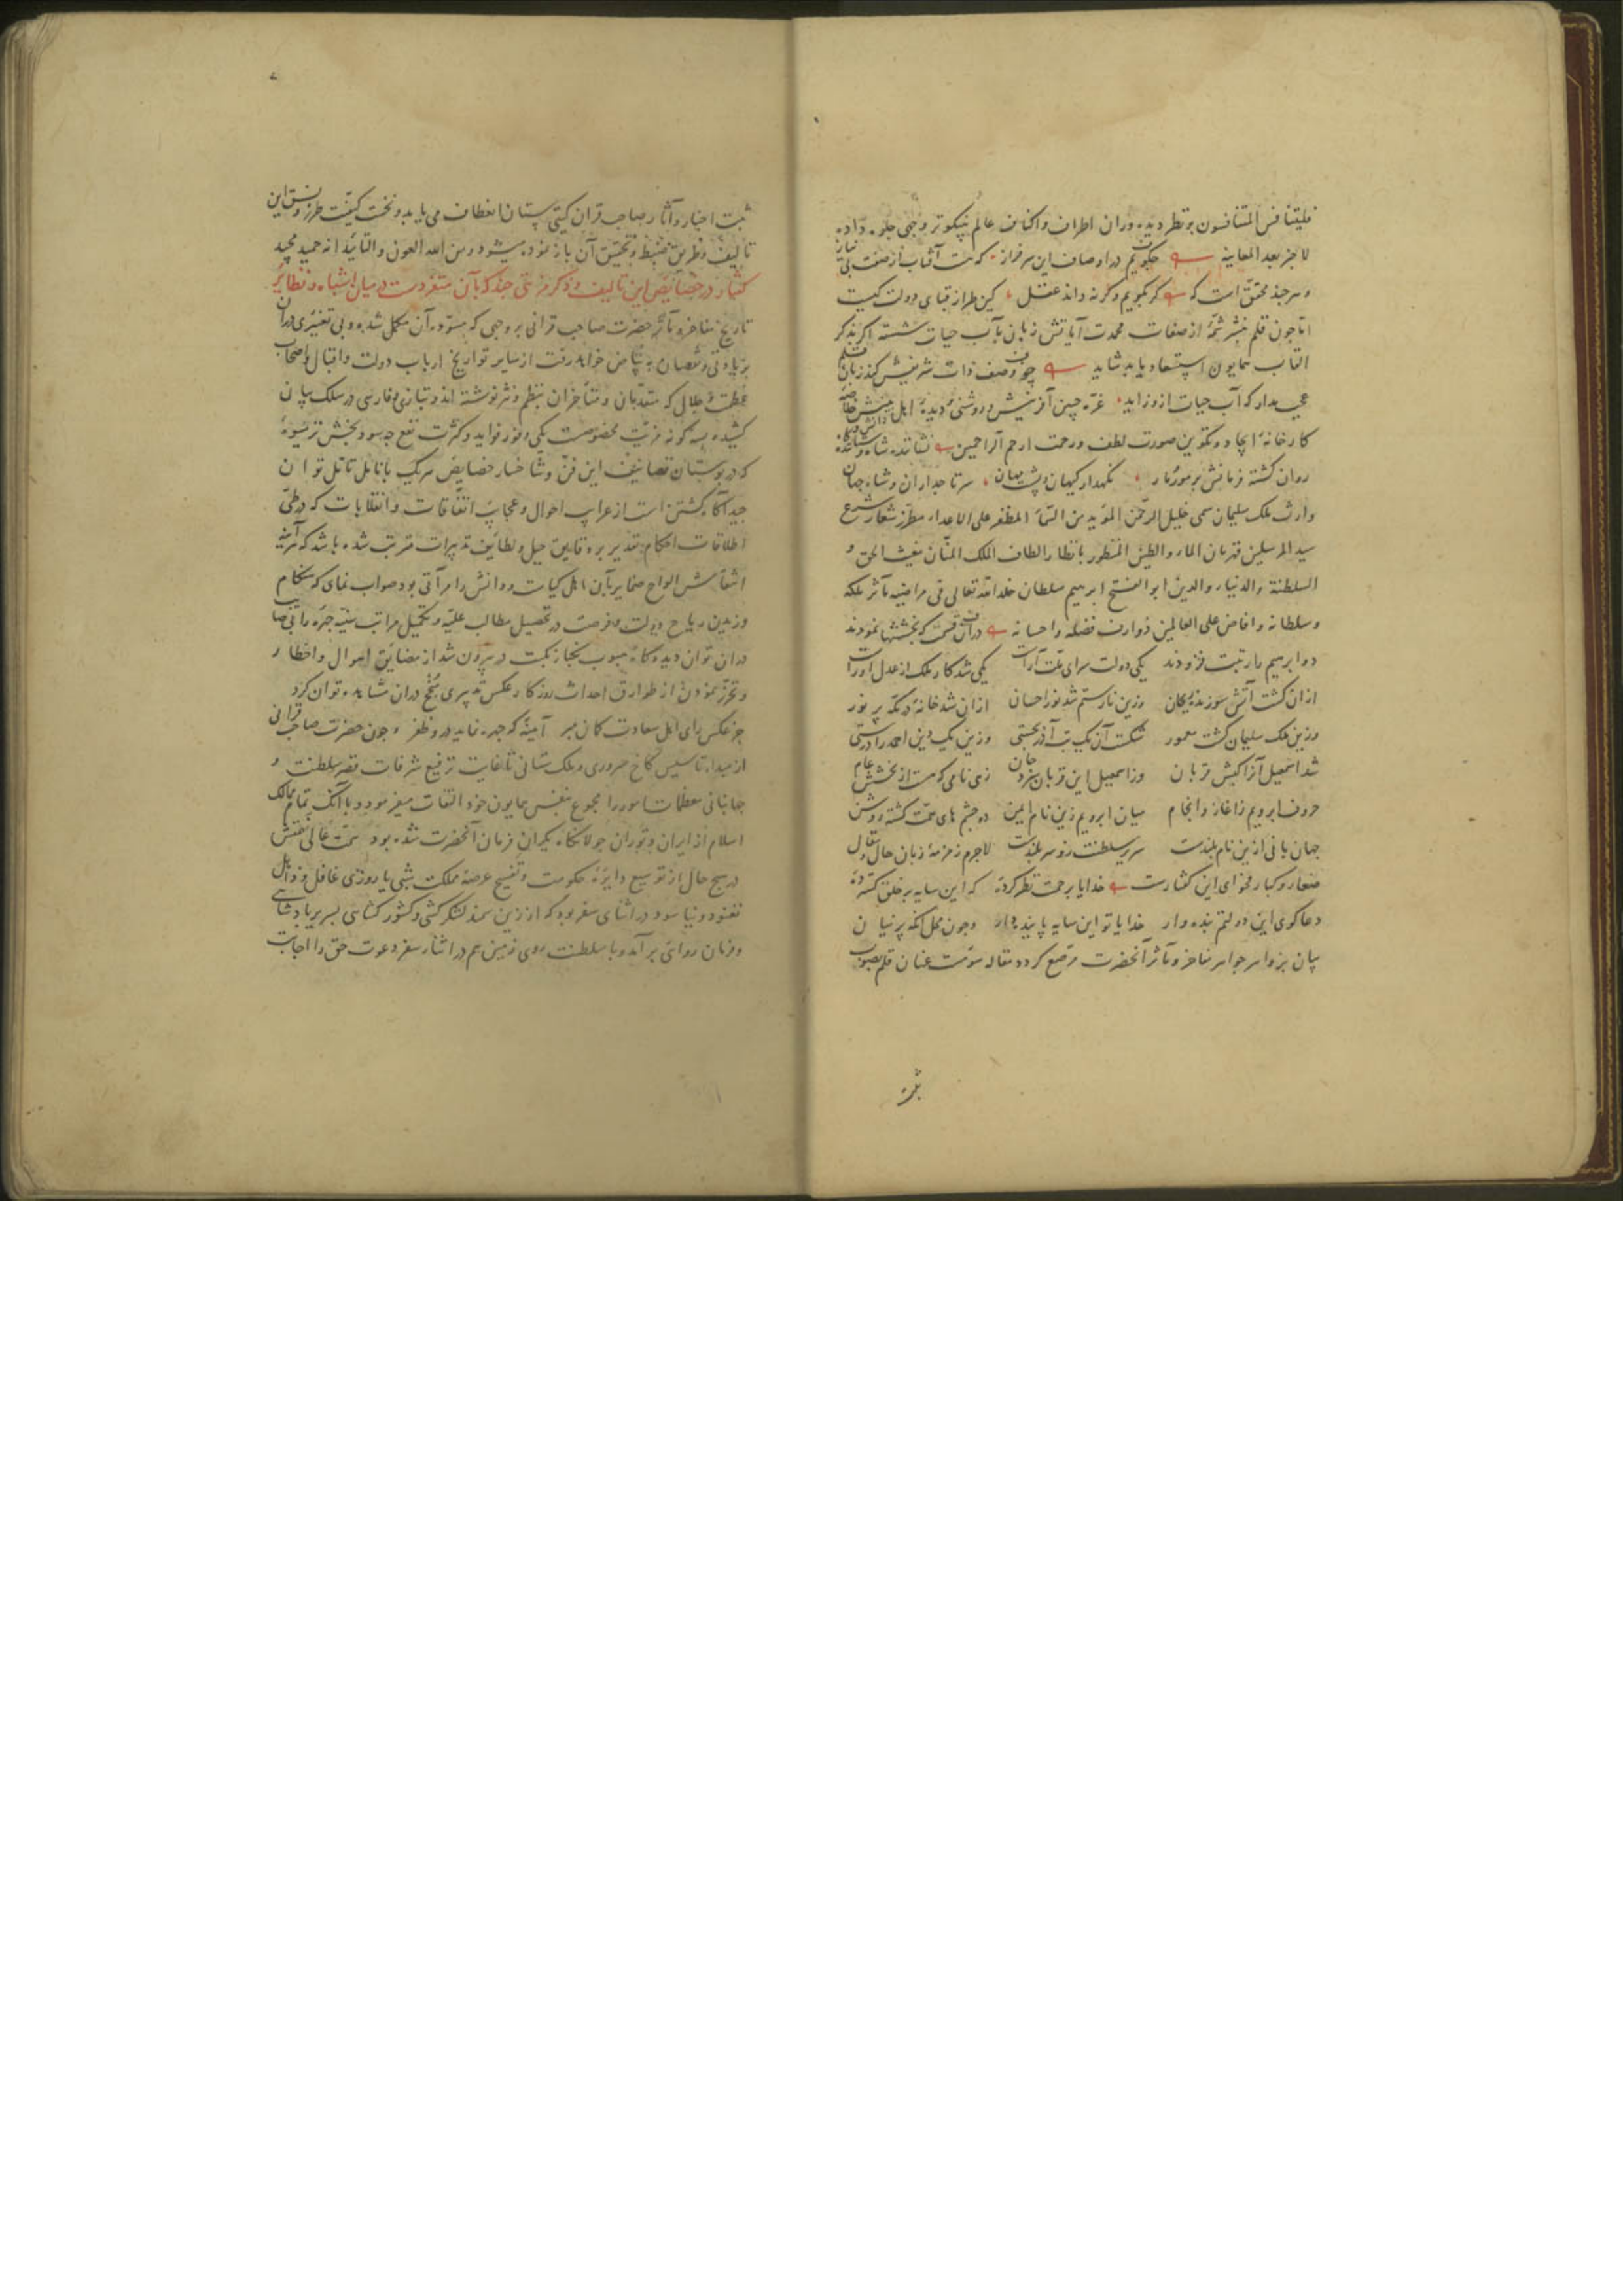 فلیتنافس المتنافسون بنظر دیده وران اطراف واکناف عالم نیکوتر وجهی جلوه داده
لا خبر بعد المعاینه چگویم در اوصاف این سرفراز که هست آفتاب از صفت بی نیاز
وهر چند محقق است که کر بگویم وکرنه داند عقل کین طراز قبای دولت کیست
اما چون قلم بنشر شمهٔ از صفات محمدت آیاتش زبان بآب حیات شسته اکر بذکر
القاب همایون استسعاد یابد شاید چو وصف ذات شریفش کند زبان قلم
عجب مدار که آب حیات ازو زاید غره جبین آفرینش وروشنی دیدهٔ اهل بینش خلاصه
کارخانهٔ ایجاد وتکوین صورت لطف ورحمت ارحم الراحمین نشاننده شاه وستاننده کاه
روان کشته فرمانش بر مور و مار نکهدار کیهان وپشت مهان سر تاجداران وشاه جهان
وارث ملک سلیمان سمی خلیل الرحمن المؤید من السماء المظفر علی الاعداء مطرز شعار شرع
سید المرسلین قهرمان الماء والطین المنظور بانظار الطاف الملک المنان مغیث الحق و
السلطنة والدنیا والدین ابو الفتح ابرهیم سلطان خلد الله تعالی فی مراضیه مآثر ملکه
وسلطانه وافاض علی العالمین ذوارف فضله واحسانه دران قسمت که بخششها نمودند
دو ابرهیم را رتبت فزودند یکی دولت سرای ملت آراست یکی شد کار ملک از عدل او راست
ازان کشت آتش سوزنده ریحان وزین نار ستم شد نور احسان ازان شد خانهٔ در مکه پر نور
وزین ملک سلیمان کشت معمور شکست آن یک بت آزر بچستی وزین یک دین احمد را درستی
شد اسمعیل آنرا کیش قربان وز اسمعیل این قربان سزد جان زهی نامی که هست از بخشش عام
حروف ابرویم ز آغاز وانجام میان ابرویم زین نام ایمن دو چشم های همت کشته روشن
جهان بانی ازین نام بلندست سریر سلطنت زو سر بلندست لاجرم زمزمهٔ زبان حال وقال
صغار وکبار فحوای این کفتارست خدایا برحمت نظر کردهٔ که این سایه بر خلق کستردهٔ
دعا کوی این دولتم بنده وار خدایا تو این سایه پاینده دار وچون محل آنکه پرنیان
بیان بزواهر جواهر مفاخر ومآثر آنحضرت مرصع کردد مقاله سومست عنان قلم بصوب
ثبت
ثبت اخبار وآثار صاحب قران کیتی ستان انعطاف می یابد ونخست کیفیت طرز ونسق این
تالیف وطریق ضبط وتحقیق آن باز نموده میشود ومن الله العون والتایید انه حمید مجید
کفتار در خصایص این تالیف وذکر مزیتی چند که بآن متفردست در میان اشباه ونظایر
تاریخ مفاخر ومآثر حضرت صاحب قرانی بر وجهی که مسوده آن مکمل شده وبی تغییری دران
بزیادتی ونقصان به بیاض خواهد رفت از سایر تواریخ ارباب دولت واقبال واصحاب
عظمت وجلال که متقدمان ومتأخران بنظم ونثر نوشته اند وبتازی وفارسی در سلک بیان
کشیده بسه کونه مزیت مخصوصست یکی وفور فواید وکثرت نفع چه سود بخش تر میوهٔ
که در بوستان تصانیف این فن وشاخسار خصایص هر یک بانامل تامل توان
چید آکاه کشتن است از غرایب احوال وعجایب اتفاقات وانقلابات که در طی
اطلاقات احکام تقدیر بر دقایق حیل ولطایف تدبیرات مترتب شده باشد که هرآینه
انتقاش الواح ضمایر بآن اهل کیاست ودانش را مرآتی بود صواب نمای که هنکام
وزیدن ریاح دولت وفرصت در تحصیل مطالب علیه وتکمیل مراتب سنیه چهره رای صایب
دران توان دید وکاه هبوب نکباء نکبت در بیرون شد از مضایق اهوال واخطار
وتحرز نمودن از طوارق احداث روزکار عکس تدبیری منجح دران مشاهده توان کرد
جز عکس رای اهل سعادت کمان مبر آیینهٔ که چهره نماید درو ظفر وچون حضرت صاحب قرانی
از مبداء تاسیس کاخ سروری وملک ستانی تا غایت ترفیع شرفات قصر سلطنت و
جهانبانی معظمات امور را مجموع بنفس همایون خود التفات میفرمود وبا آنک تمام ممالک
اسلام از ایران وتوران جولانکاه یکران فرمان آنحضرت شده بود همت عالی نهمتش
در هیچ حال از توسیع دایرهٔ حکومت وتفسیح عرصهٔ مملکت شبی یا روزی غافل وذاهل
نغنود ونیاسود در اثنای سفر بود که از زین سمند لشکر کشی وکشور کشای بسریر پادشاهی
وفرمان روائی بر آمد وبا سلطنت روی زمین هم در اثناء سفر دعوت حق را اجابت